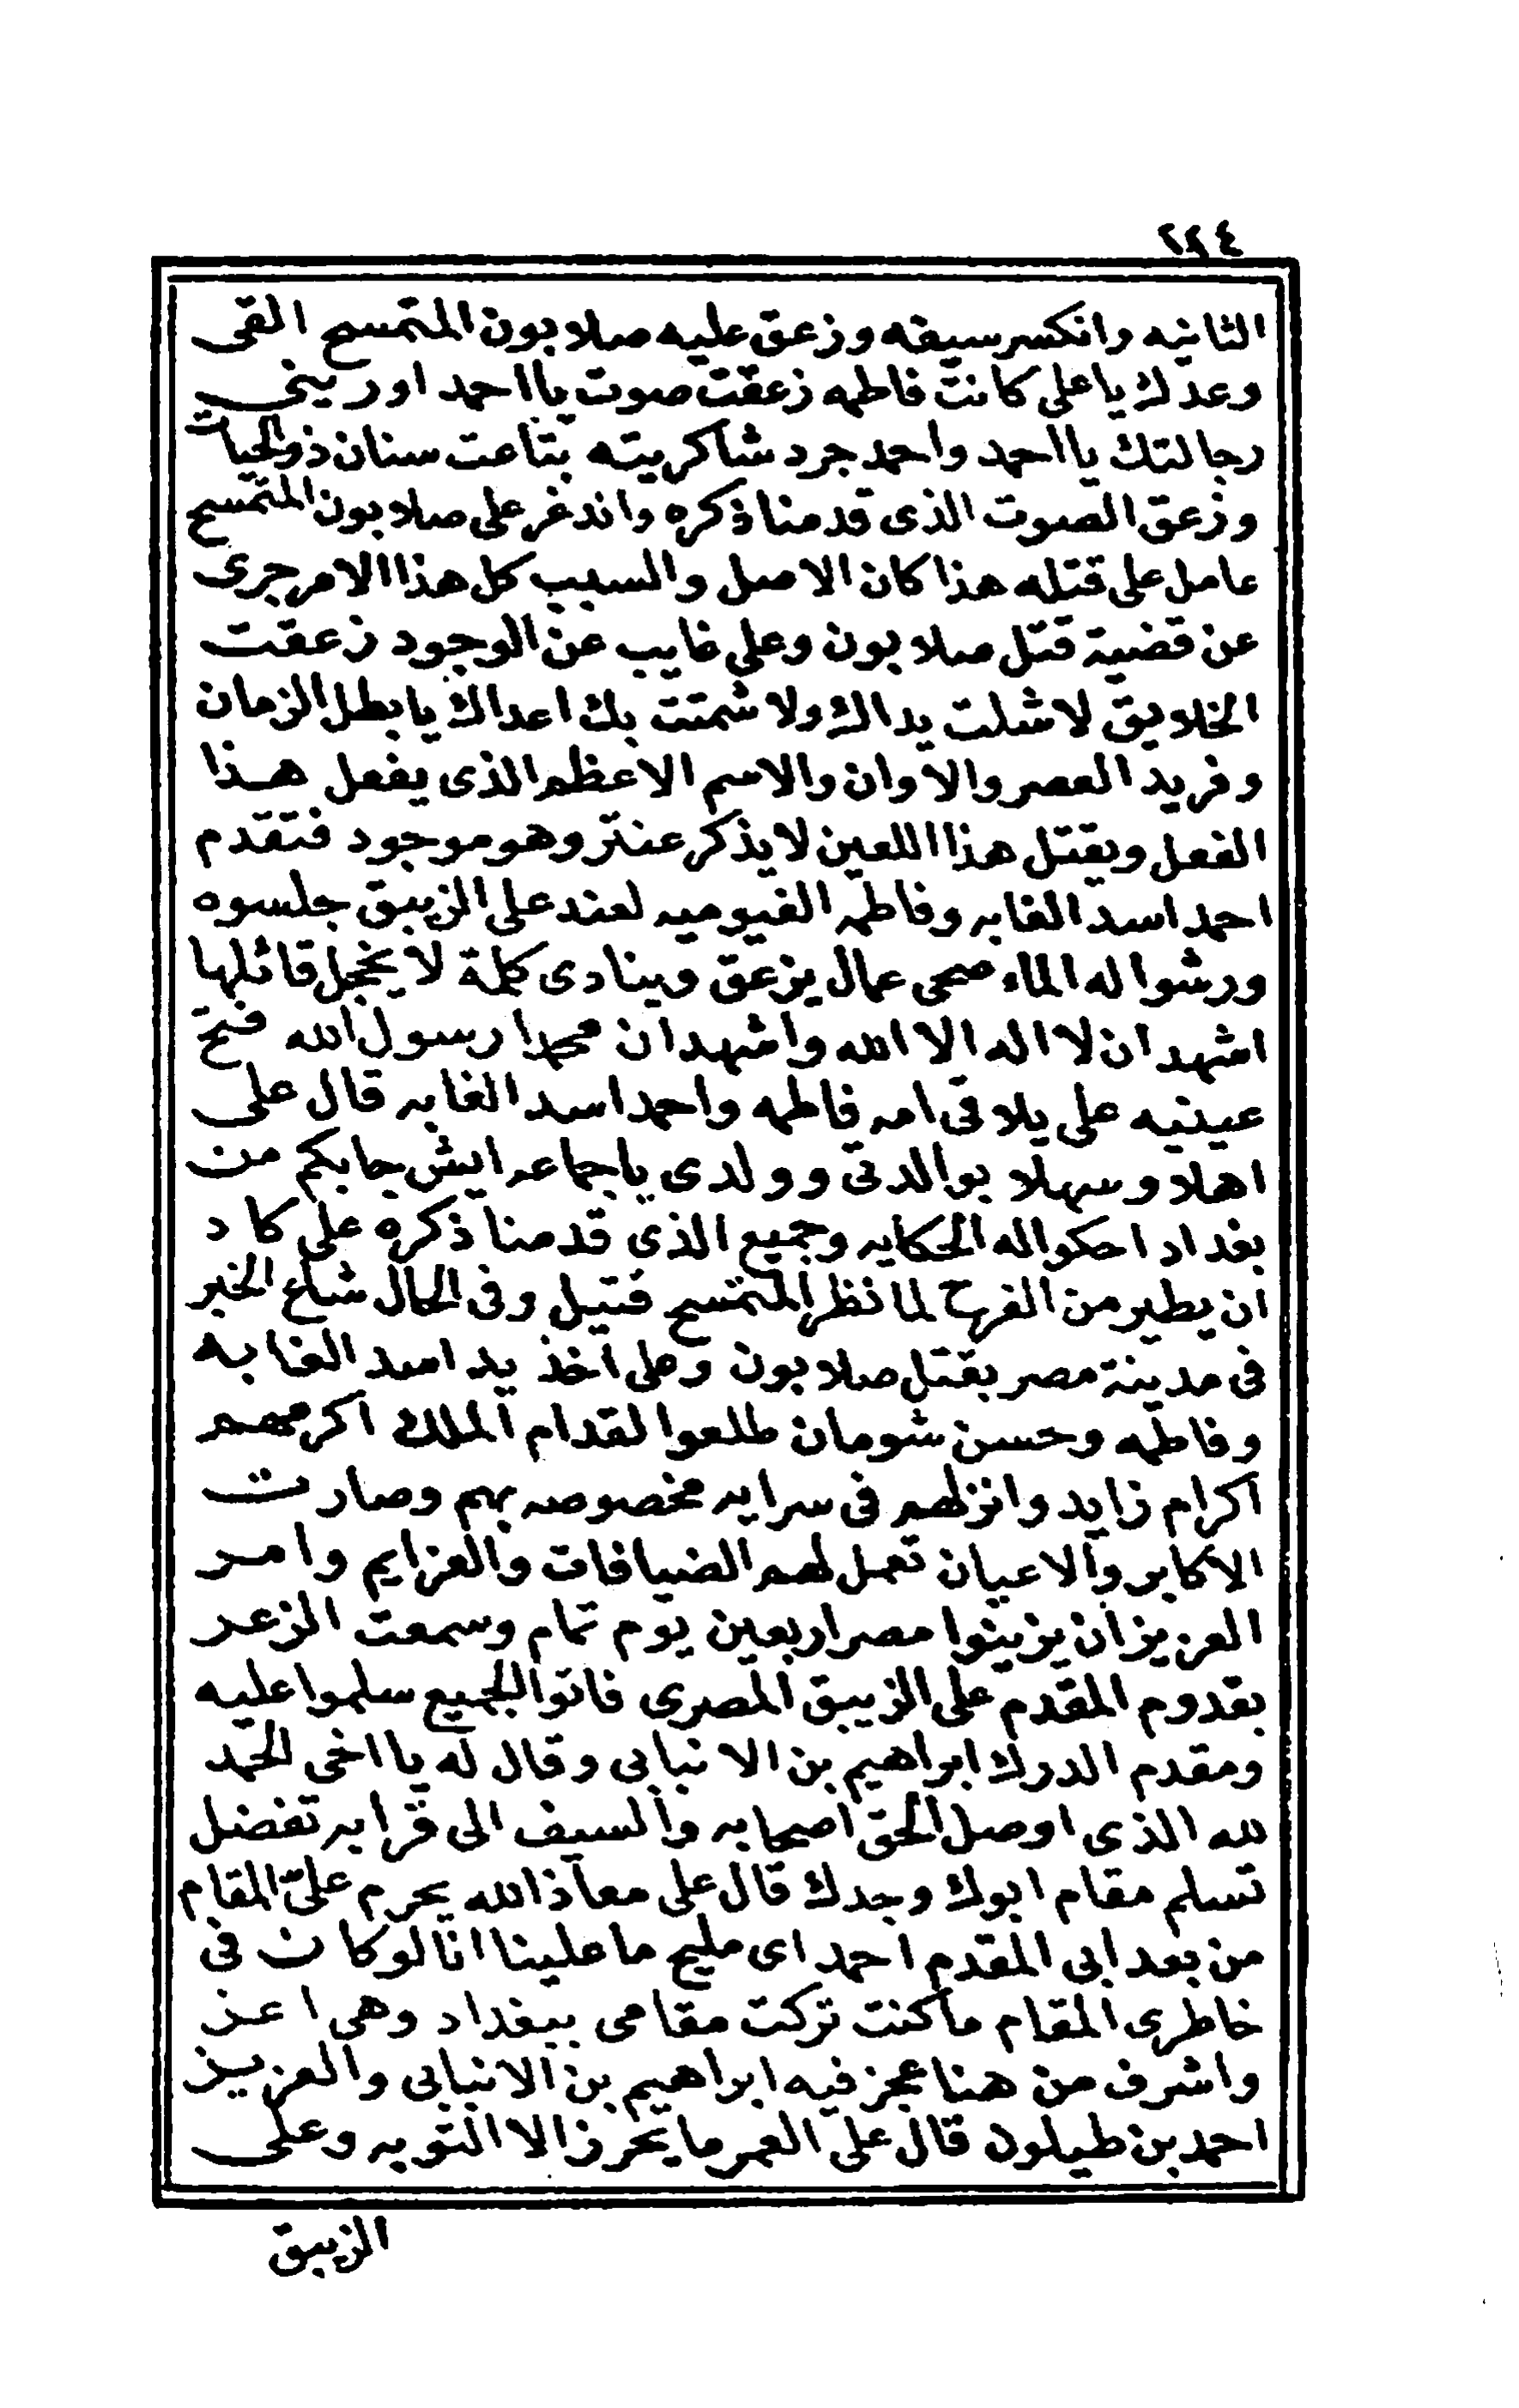 ٢٨٤
الثانيه وانكسر سيفه وزعق عليه صلابون المتمسح القى
وعدك ياعلى كانت فاطمه زعقت صوت يا احمد اورينى
رجالتك يا احمد واحمد جرد شاكريته بتاعت سنان ذو الحيات
وزعق الصوت الذى قدمنا ذكره واندغر على صلابون المتمسح
عامل على قتله هذا كان الاصل والسبب كل هذا الامر جرى
عن قضية قتل صلابون وعلى غايب عن الوجود زعقت
الخلايق لا شلت يداك ولا شمتت بك اعداك يا بطل الزمان
وفريد العصر والاوان والاسم الاعظم الذى يفعل هذا
الفعل ويقتل هذا اللعين لا يذكر عنتر وهو موجود فتقدم
احمد اسد الغابه وفاطمه الفيوميه لعند على الزيبق جلسوه
ورشوا له الماء صحى عمال يزعق وينادى كلمة لا يخجل قائلها
اشهد ان لا اله الا الله واشهد ان محمدا رسول الله فتح
عينيه على يلاقى امه فاطمه واحمد اسد الغابه قال على
اهلا وسهلا بوالدتى وولدى يا جماعه ايش جابكم من
بغداد احكوا له الحكايه وجميع الذى قدمنا ذكره على كاد
ان يطير من الفرح لما نظر المتمسح قتيل وفى الحال شاع الخبر
فى مدينة مصر بقتل صلابون وعلى اخذ يد اسد الغابه
وفاطمه وحسن شومان طلعوا لقدام الملك اكرمهم
اكرام زايد وانزلهم فى سرايه مخصوصه بهم وصارت
الاكابر والاعيان تعمل لهم الضيافات والعزايم وامر
العزيز ان يزينوا مصر اربعين يوم تمام وسمعت الزعر
بقدوم المقدم على الزيبق المصرى فاتوا الجميع سلموا عليه
ومقدم الدرك ابراهيم بن الانبابى وقال له يا اخى الحمد
لله الذى اوصل الحق اصحابه والسيف الى قرابه تفضل
تسلم مقام ابوك وجدك قال على معاذ الله يحرم علىّ المقام
من بعد ابى المقدم احمد اى مليح ما علينا انا لو كان فى
خاطرى المقام ما كنت تركت مقامى ببغداد وهى اعز
واشرف من هنا عجز فيه ابراهيم بن الانبابى والعزيز
احمد بن طيلون قال على العمر ما يحرز الا التوبه وعلى
الزيبق